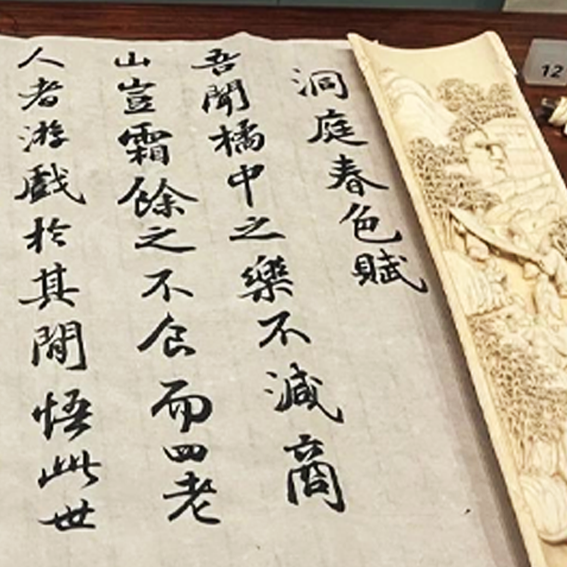 洞庭春色賦
吾聞橘中之樂不減商
山豈霜餘之不食而四老
人者游戲於其閒悟此世
12